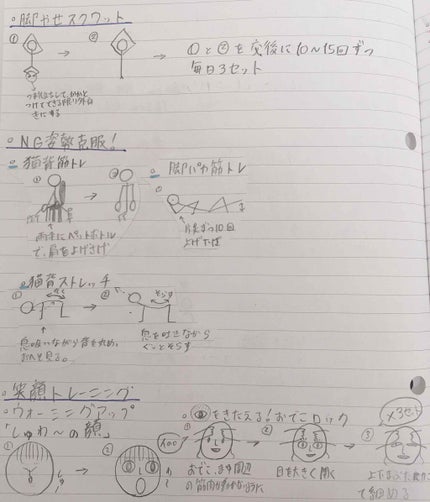 脚やせスクワット
① → ②
①と②を交互に10〜15回ずつ
毎日3セット
つま先立ちして、かかと
つけてできる限り外向
きにする
NG姿勢克服!
猫背筋トレ
脚パカ筋トレ
① → ②
両手にペットボトル
で、肩を上げ下げ
片足ずつ10回
上げ下げ
猫背ストレッチ
① → ②
息吸いながら背を丸め、
おへそ見る。
息を吐きながら
ぐーっとそらす
そらす
笑顔トレーニング
ウォーミングアップ
「しゅわ〜の顔」
をきたえる!おでこロック
① → ②
① → ② → ③
×3セット
おでこ、まゆ周辺
の筋肉が動かないように
目を大きく開く
上下まぶた
て細める